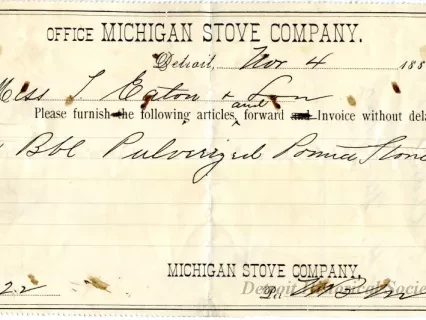 OFFICE MICHIGAN STOVE COMPANY.
Detroit, Nov 4 188
Mess T. Eaton & Son
and
Please furnish the following articles, forward and Invoice without dela
Bbl Pulverized Pomice Stone
MICHIGAN STOVE COMPANY,
Detroit Historical Society
22 Per